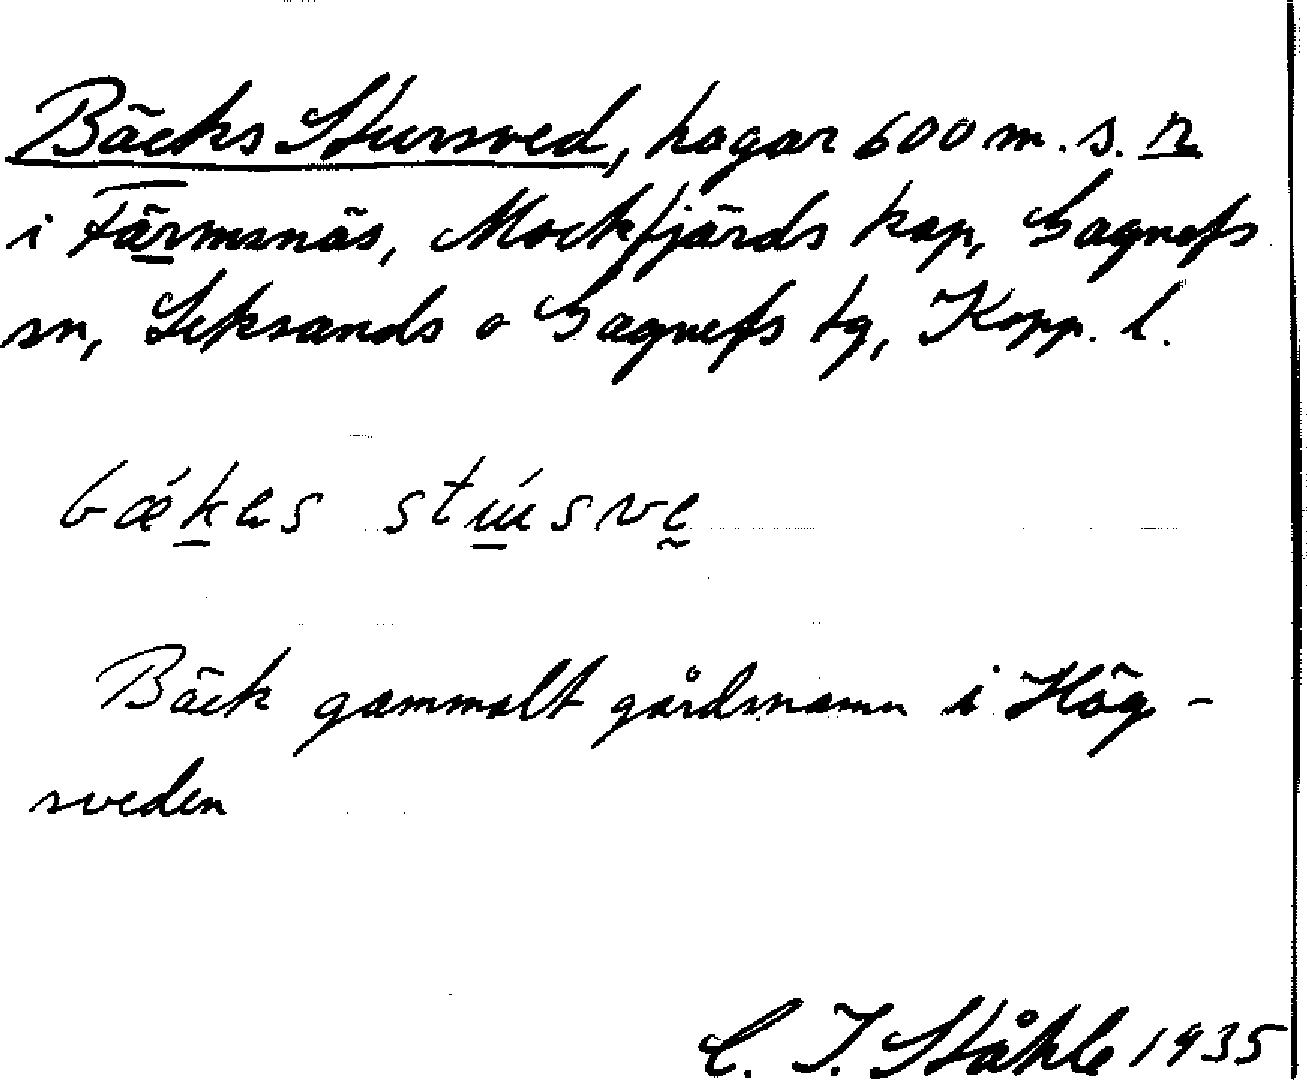 Bäcks Stursved, hagar 600 m. s. n
i Färmsnäs, Mockfjärds kap, Gagnefs
sn, Leksands o Gagnefs tg, Kopp. l.
Bäck gammalt gårdsnamn i Hög-
sveden
C. I. Ståhle 1935